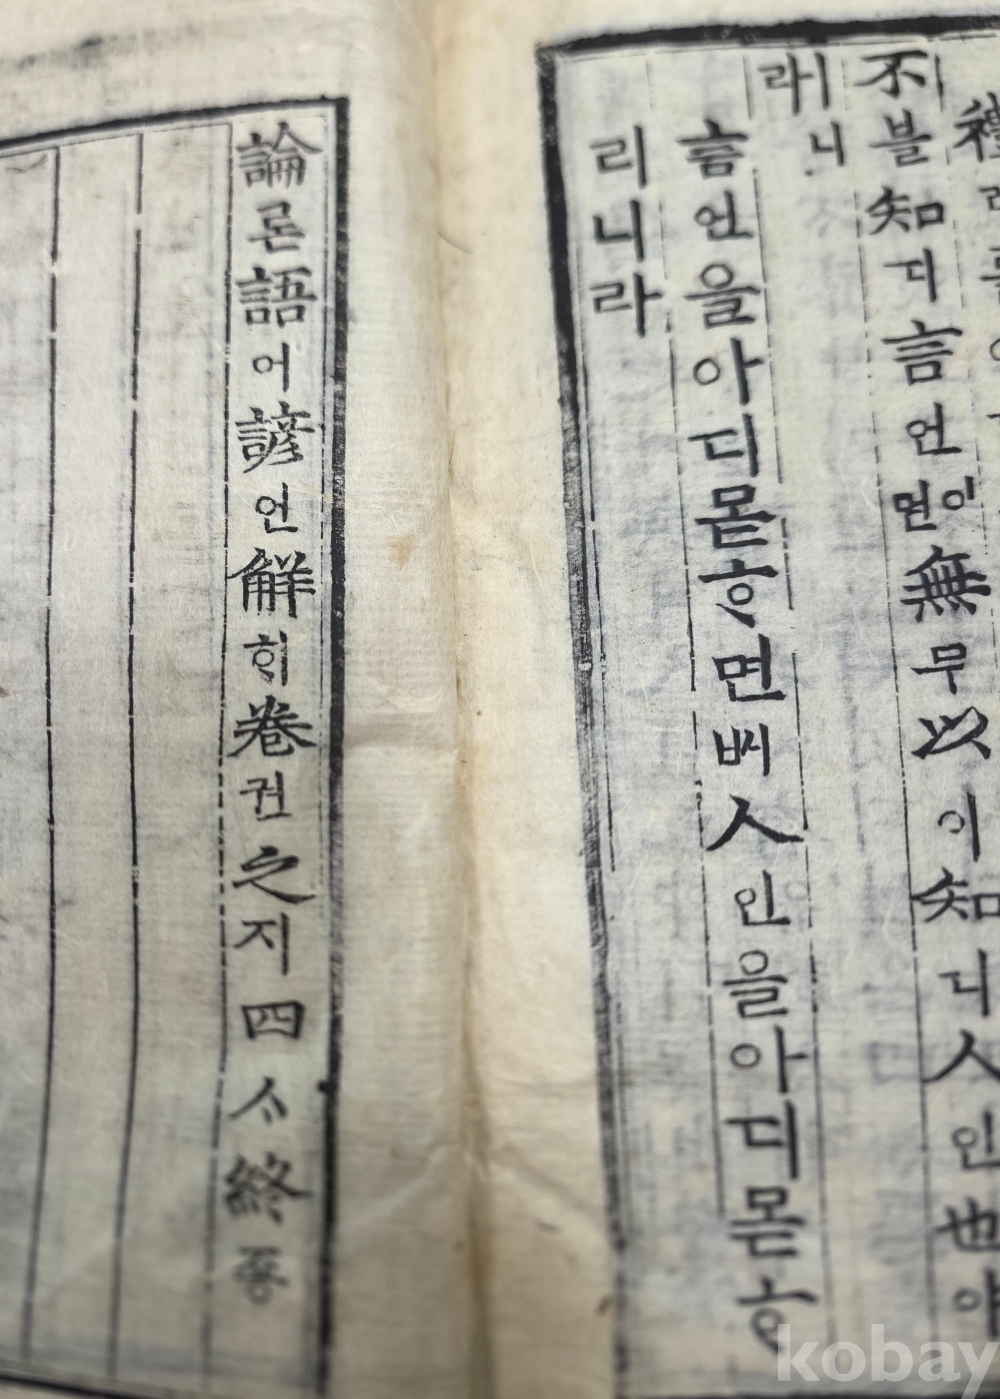 禮
不블知디言언이면無무以이知디人인也야
ㅣ니라
言언을아디몯ᄒᆞ면ᄡᅥ人인을아디몯ᄒᆞ
리니라
論론語어諺언解ᄒᆡ卷권之지四ᄉᆞ終죵
kobay